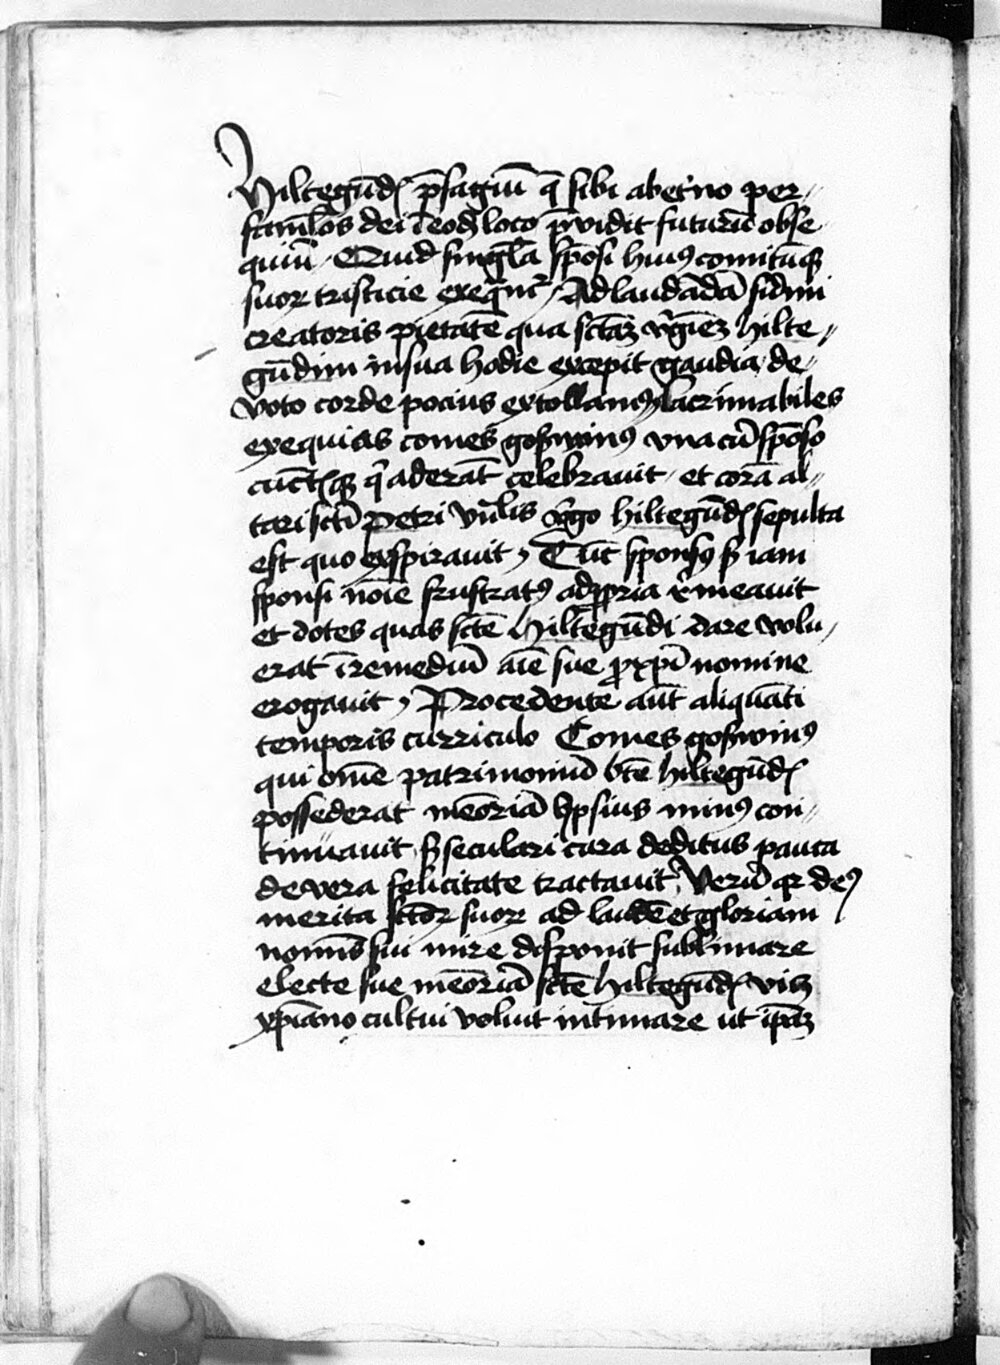 Hiltegūdꝭ p̄sagiū q̄ sibi abet'no per⸗
famĺos dei ī eodē loco p̄vidit futurū obse
quiū. Quid singĺa sp̄osi huiꝰ comitūqꝫ
suoꝝ tristicie exeq̄mʳ. Ad laudādā sidm̄
creatoris pietatē qua sctāꝫ v̓gīeꝫ Hilte⸗
gūdim in sua hodie excepit gaudia, de⸗
voto corde pocius extollamꝰ, lacrimabiles
exequias comes goswinꝰ vna cū sp̄oso
cūctꝭqꝫ q̄ aderāt celebravit, et corā al⸗
tari sctī Petri vn̄lis v̓go hiltegūdꝭ sepulta
est quo exspiravit, Tūc sponsꝰ s̄ iam
sponsi noīe frustratꝰ ad ꝓpria r̓meavit
et dotes quas sctē Hiltegūdi dare volu⸗
erat ī remediū aīe sue ꝓ xp̄i nomine
erogavit, Procedente aūt aliquāti
temporis curriculo Comes goswinꝰ
qui om̄e patrimoniū btē hiltegūdꝭ
possederat meōriā ipsius minꝰ con⸗
tinuavit, s̄ seculari cura deditus pauca
de vera felicitate tractavit, Verū qr deꝰ
merita sctōꝝ suoꝝ ad laudē et gloriam
nomīs sui mire disponit sublimare
electe sue meōriā sctē Hiltegūdꝭ viꝫ
xp̄iano cultui voluit intimare ut ip̄aꝫ